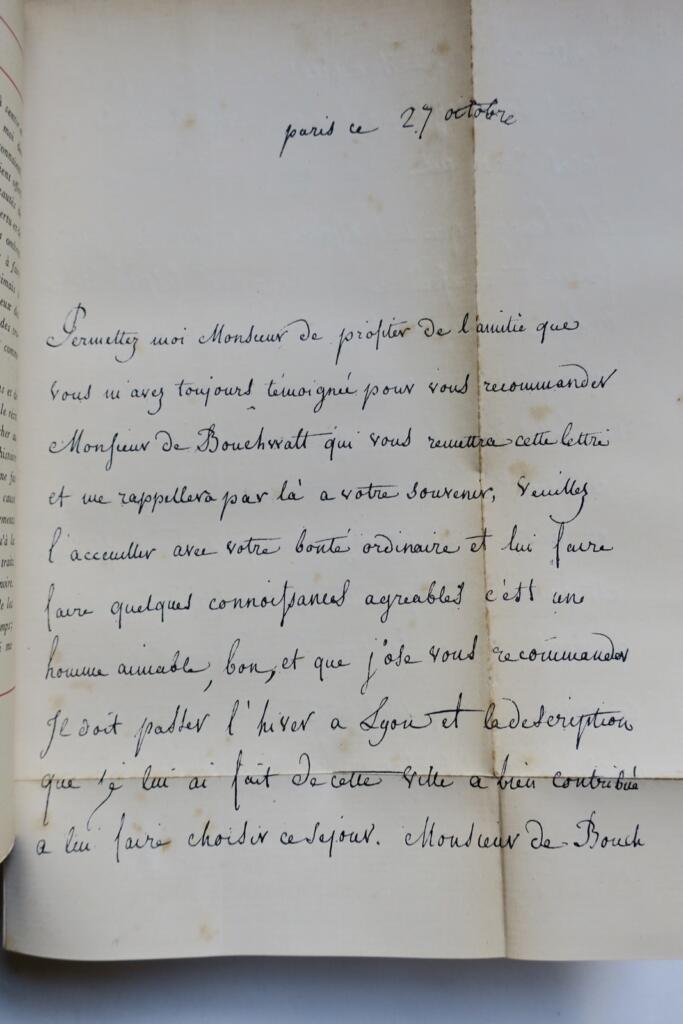 paris ce 27 octobre
Permettez moi Monsieur de profiter de l'amitié que
vous m'avez toujours témoignée pour vous recommander
Monsieur de Bouchwatt qui vous remettra cette lettre
et me rappellera par là a votre souvenir, veuillez
l'acceuiller avec votre bonté ordinaire et lui faire
faire quelques connoissances agreables c'est un
homme aimable, bon, et que j'ose vous recommander
Il doit passer l'hiver a Lyon et la description
que j'e lui ai fait de cette ville a bien contribué
a lui faire choisir ce sejour. Monsieur de Bouch